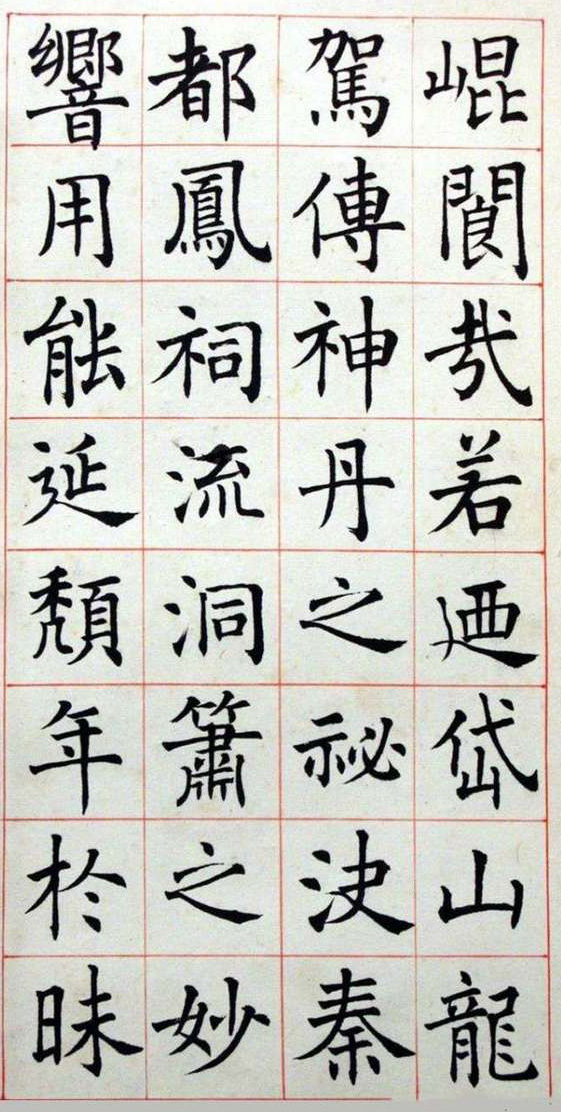 崐閬㢤若迺岱山龍
駕傳神丹之祕決秦
都鳳祠流洞簫之妙
響用能延頹年於昧